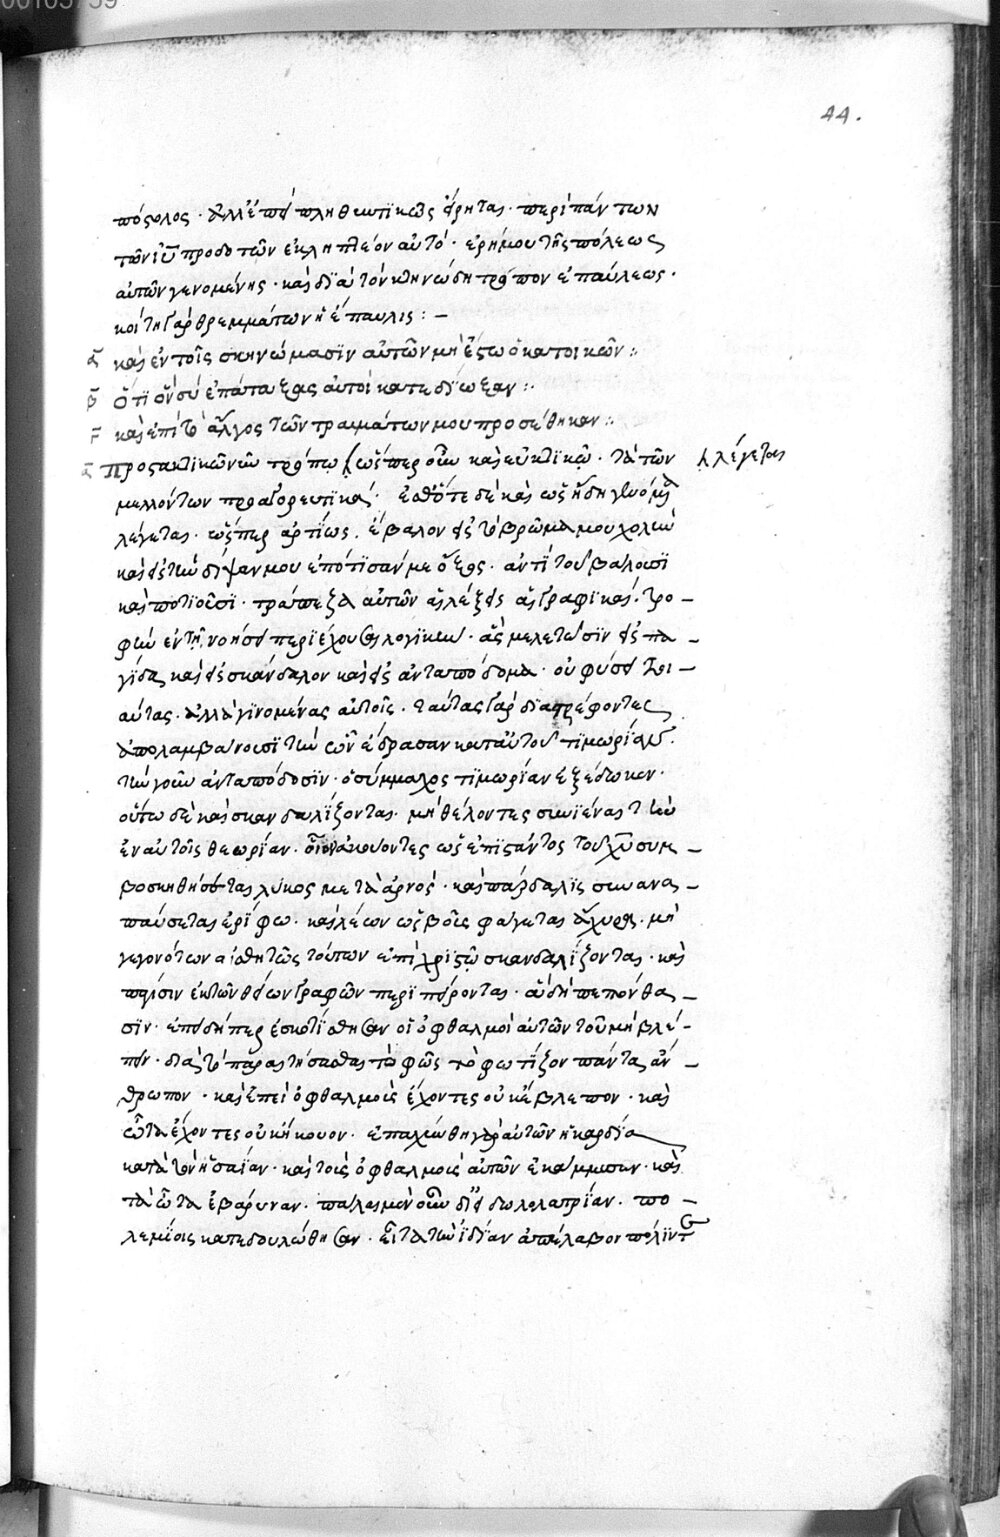 44.
πόστολος · ἀλλ' ἐπεὶ πληθυντικῶς εἴρηται · περὶ πάντων
τῶν ἰῡ προδοτῶν ἐκληπτέον αὐτό · ἐρήμου τῆς πόλεως
αὐτῶν γενομένης · καὶ διὰ τὸν κτηνώδη τρόπον ἐπαύλεως ·
κοίτη γὰρ θρεμμάτων ἡ ἔπαυλις : –
ᾱ καὶ ἐν τοῖς σκηνώμασιν αὐτῶν μὴ ἔστω ὁ κατοικῶν :
β̄ ὅτι ὃν σὺ ἐπάταξας αὐτοὶ κατεδίωξαν :
γ̄ καὶ ἐπὶ τὸ ἄλγος τῶν τραυμάτων μου προσέθηκαν :
ᾱ Προστακτικῶν τρόπω ὥσπερ οὖν καὶ εὐκτικῶ · τὰ τῶν λέγεται
μελλόντων προαγορευτικά · ἔσθ' ὅτε δὲ καὶ ὡς ἤδη γενόμενα
λέγεται · ὥσπερ ἀρτίως . ἔβαλον εἰς τὸ βρῶμα μου χολὴν
καὶ εἰς τὴν δίψαν μου ἐπότισάν με ὄξος · ἀντὶ τοῦ βαλοῦσι
καὶ ποτιοῦσι · τράπεζα αὐτῶν αἱ λέξεις αἱ γραφικαὶ · τρο–
φὴν ἐν τῆ νοήσει περιέχουσαι λογικὴν · ἃς μελετῶσιν εἰς πα–
γίδα καὶ εἰς σκάνδαλον καὶ εἰς ἀνταπόδομα · οὐ φύσει τοι–
αύτας · ἀλλὰ γινομένας αὐτοῖς · ταύτας γὰρ διαστρέφοντες
ἀπολαμβάνουσι τὴν ὧν ἔδρασαν κατ' αὐτοῦ τιμωρίαν ·
τὴν γοῦν ἀνταπόδοσιν · ὁ σύμμαχος τιμωρίαν ἐξέδωκεν ·
οὕτω δὲ καὶ σκανδαλίζονται · μὴ θέλοντες συνιέναι τὴν
ἐν αὐτοῖς θεωρίαν · οἷον ἀκούοντες ὡς ἐπιστάντος τοῦ χῡ συμ–
βοσκηθήσεται λύκος μετὰ ἀρνὸς · καὶ πάρδαλις συνανα–
παύσεται ἐρίφω · καὶ λέων ὡς βοῦς φάγεται ἄχυρα · μὴ
γεγονότων αἰσθητῶς τούτων ἐπὶ χριστῶ σκανδαλίζονται · καὶ
πταῖσιν ἐκ τῶν θείων γραφῶν περιπείρονται · ἃ δὴ πεπόνθα–
σιν · ἐπειδήπερ ἐσκοτίσθησαν οἱ ὀφθαλμοὶ αὐτῶν τοῦ μὴ βλέ–
πειν · διὰ τὸ παραιτήσασθαι τὸ φῶς τὸ φωτίζον πάντα ἄν–
θρωπον · καὶ ἐπεὶ ὀφθαλμοὺς ἔχοντες οὐκ ἔβλεπον · καὶ
ὦτα ἔχοντες οὐκ ἤκουον · ἐπαχύνθη γὰρ αὐτῶν ἡ καρδία
κατὰ τὸν ἡσαΐαν · καὶ τοὺς ὀφθαλμοὺς αὐτῶν ἐκάμμυσαν · καὶ
τὰ ὦτα ἐβάρυναν · πάλαι μὲν οὖν δι' εἰδωλολατρίαν · πο–
λεμίοις κατεδουλώθησαν · εἶτα τὴν ἰδίαν ἀπέλαβον πόλιν